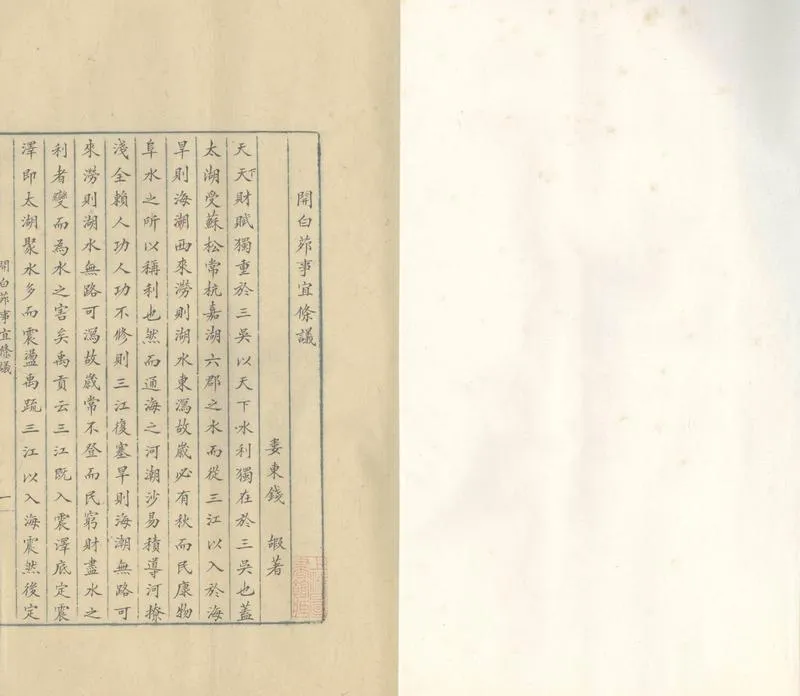 開白茆事宜條議
婁東錢 嘏著
天天下財賦獨重於三吳以天下水利獨在於三吳也蓋
太湖受蘇松常杭嘉湖六郡之水而從三江以入於海
旱則海湖西來澇則湖水東瀉故歲必有秋而民康物
阜水之所以稱利也然而通海之河潮沙易積導河撩
淺全賴人功人功不修則三江復塞旱則海潮無路可
來澇則湖水無路可瀉故歲常不登而民窮財盡水之
利者變而為水之害矣禹貢云三江既入震澤底定震
澤即太湖聚水多而震盪禹疏三江以入海震然後定
開白茆事宜條議
一